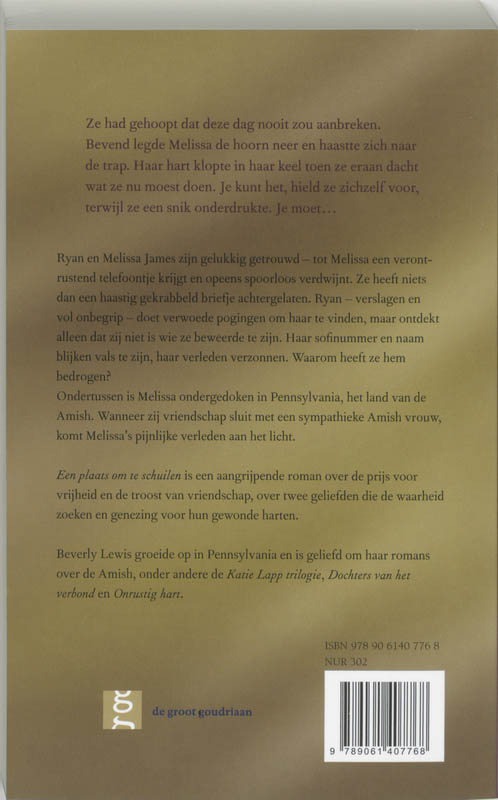 Ze had gehoopt dat deze dag nooit zou aanbreken.
Bevend legde Melissa de hoorn neer en haastte zich naar
de trap. Haar hart klopte in haar keel toen ze eraan dacht
wat ze nu moest doen. Je kunt het, hield ze zichzelf voor,
terwijl ze een snik onderdrukte. Je moet…
Ryan en Melissa James zijn gelukkig getrouwd – tot Melissa een veront-
rustend telefoontje krijgt en opeens spoorloos verdwijnt. Ze heeft niets
dan een haastig gekrabbeld briefje achtergelaten. Ryan – verslagen en
vol onbegrip – doet verwoede pogingen om haar te vinden, maar ontdekt
alleen dat zij niet is wie ze beweerde te zijn. Haar sofinummer en naam
blijken vals te zijn, haar verleden verzonnen. Waarom heeft ze hem
bedrogen?
Ondertussen is Melissa ondergedoken in Pennsylvania, het land van de
Amish. Wanneer zij vriendschap sluit met een sympathieke Amish vrouw,
komt Melissa's pijnlijke verleden aan het licht.
Een plaats om te schuilen is een aangrijpende roman over de prijs voor
vrijheid en de troost van vriendschap, over twee geliefden die de waarheid
zoeken en genezing voor hun gewonde harten.
Beverly Lewis groeide op in Pennsylvania en is geliefd om haar romans
over de Amish, onder andere de Katie Lapp trilogie, Dochters van het
verbond en Onrustig hart.
ISBN 978 90 6140 776 8
NUR 302
de groot goudriaan
9 789061 407768